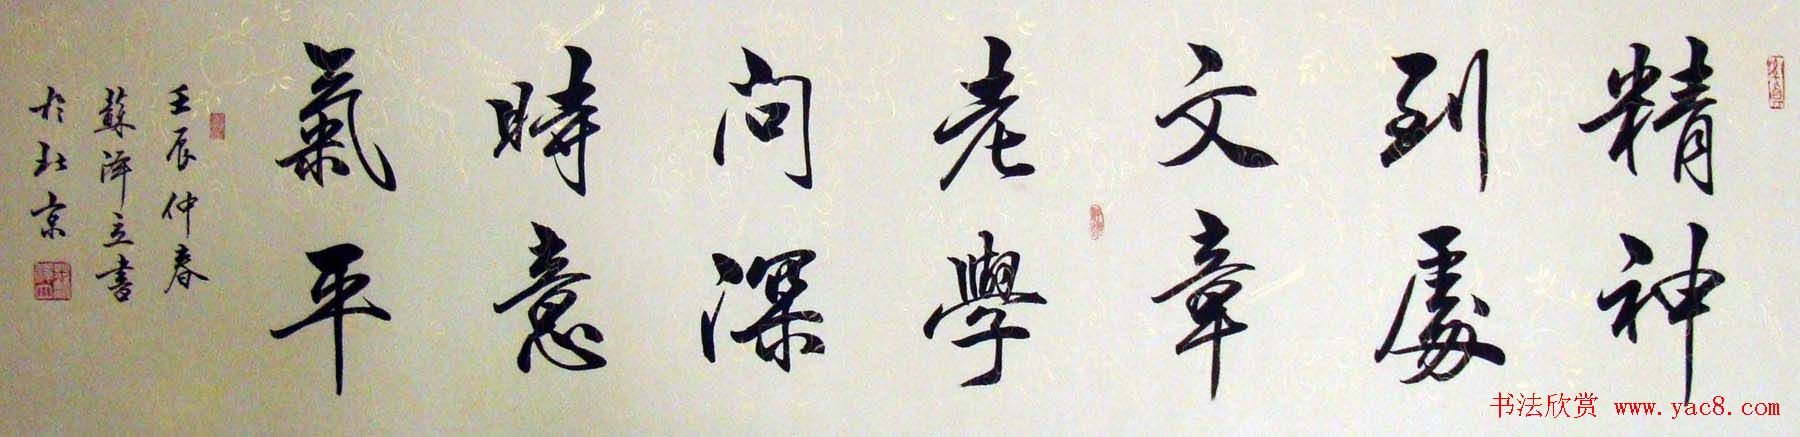 精神
到處
文章
老學
問深
時意
氣平
壬辰仲春
蘇澤立書
於北京
书法欣赏 www.yac8.com